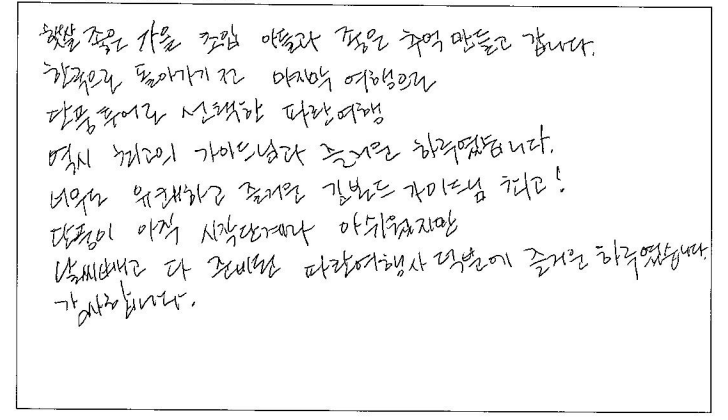 햇살 좋은 가을 초입 아들과 좋은 추억 만들고 갑니다.
한국으로 돌아가기 전 마지막 여행으로
단풍투어로 선택한 파란여행
역시 최고의 가이드님과 즐거운 하루였습니다.
너무도 유쾌하고 즐거운 길버트 가이드님 최고!
단풍이 아직 시작단계라 아쉬웠지만
날씨빼고 다 준비된 파란여행사 덕분에 즐거운 하루였습니다.
감사합니다.